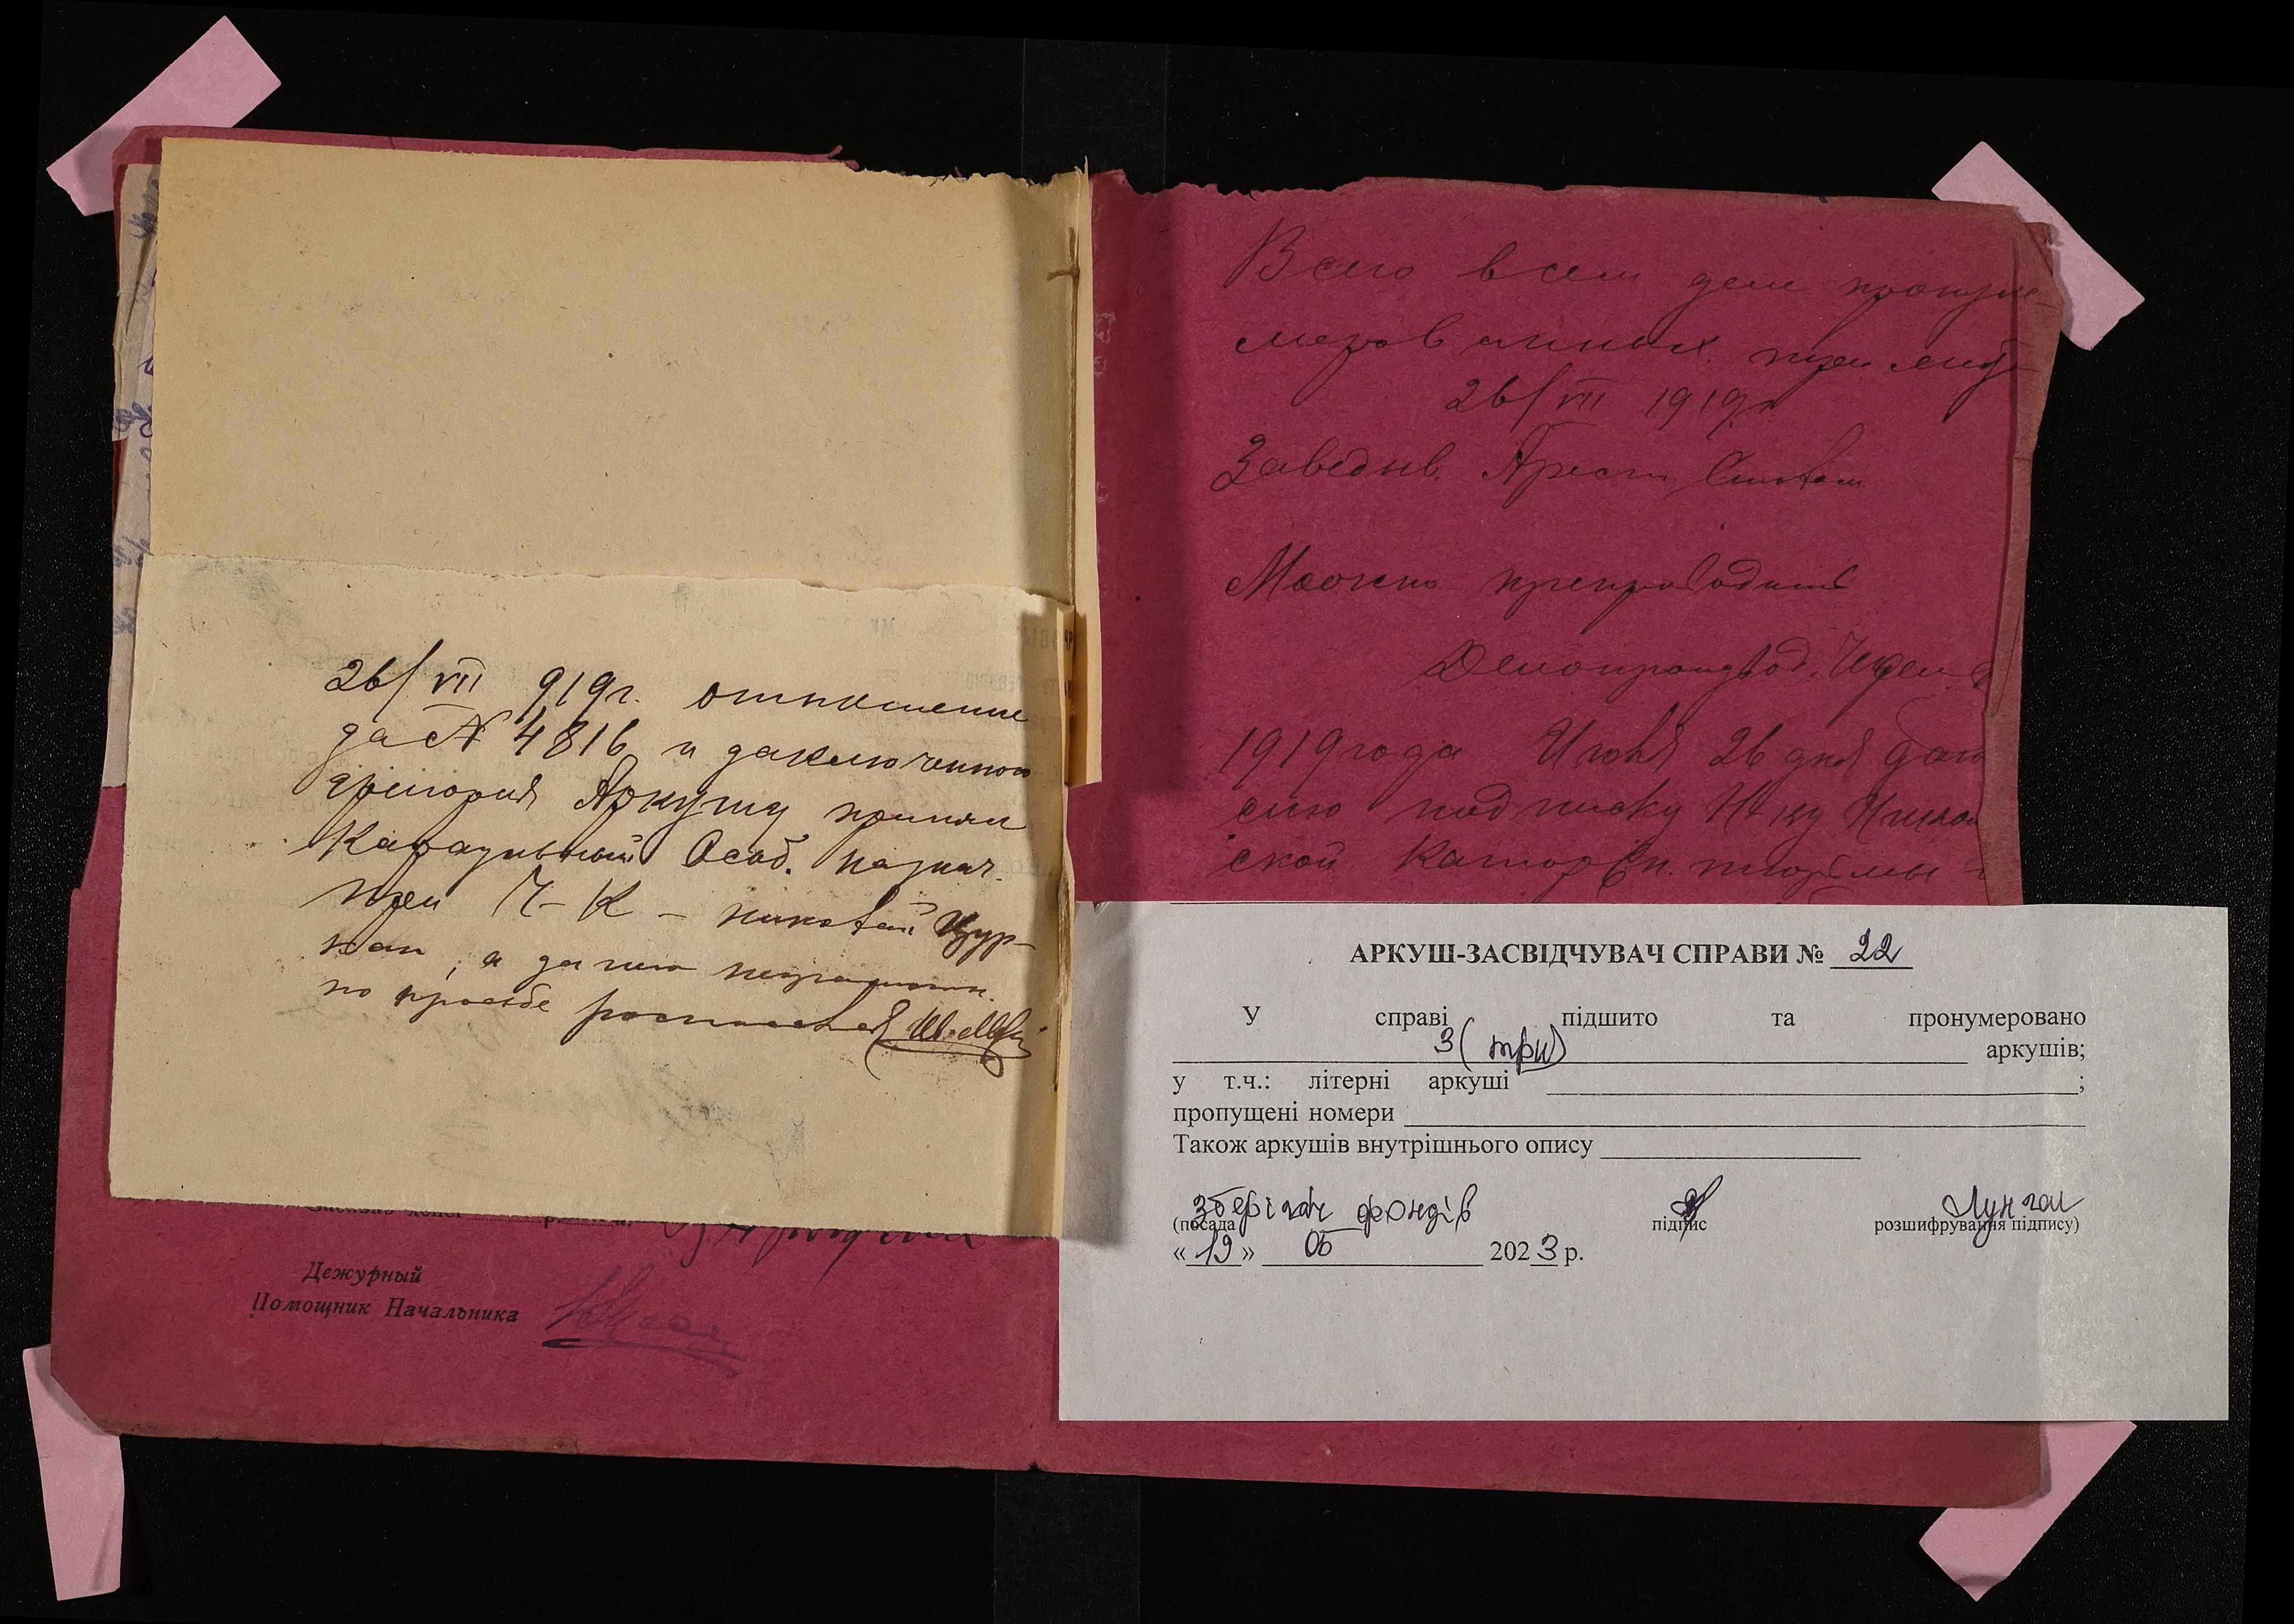 26/VII 919г. отношение
за № 4816 и заключенного
Григория Аркушу принял
Караульный Особ. назнач.
при Ч-К – Николай Цур-
кан, а за него неграмотн.
по просьбе росписался
Дежурный
Помощник Начальника
Всего в сем деле прону-
мерованных три лист
26/VII 1919г
Заведыв. Арест. Столом
Можно препроводить
Делопроизвод.
1919 года Июля 26 дня даю
сию подписку Н-ку
ской Каторжн. тюрьмы
АРКУШ-ЗАСВІДЧУВАЧ СПРАВИ № 22
У справі підшито та пронумеровано
3 (три) аркушів;
у т.ч.: літерні аркуші ;
пропущені номери
Також аркушів внутрішнього опису
Зберігач фондів Лунгол
(посада підпис розшифрування підпису)
« 19 » 05 2023 р.